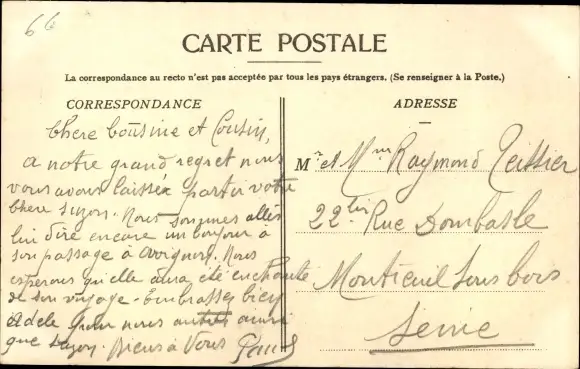 66
CARTE POSTALE
La correspondance au recto n'est pas acceptée par tous les pays étrangers. (Se renseigner à la Poste.)
CORRESPONDANCE
Chere Cousine et Cousin,
a notre grand regret nous
vous avons laissée partir votre
chere Suzon. Nous sommes allés
lui dire encore un bonjour à
son passage à Avignon. Nous
esperons qu'elle aura été enchantée
de son voyage. Embrassez bien
Adele pour nous ainsi
que Suzon. Biens à Vous Paul
ADRESSE
Mr et Mme Raymond Teissier
22bis Rue Dombasle
Montreuil sous bois
Seine